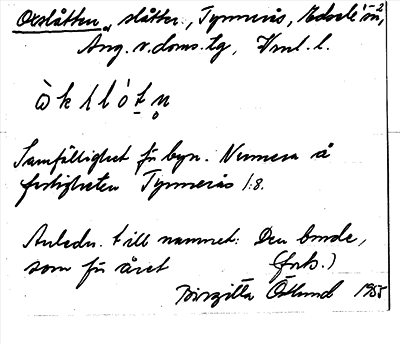 Okslåtten, slåtter, Tynnerås, Edsele sn,
Ång. v. doms. lg, Vml. l.
ò k l l ó t n
Samfällighet för byn. Numera å
fastigheten Tynnerås 1:8.
Anledn. till namnet: Den bonde,
som för året (forts.)
Birgitta Östlund 1955